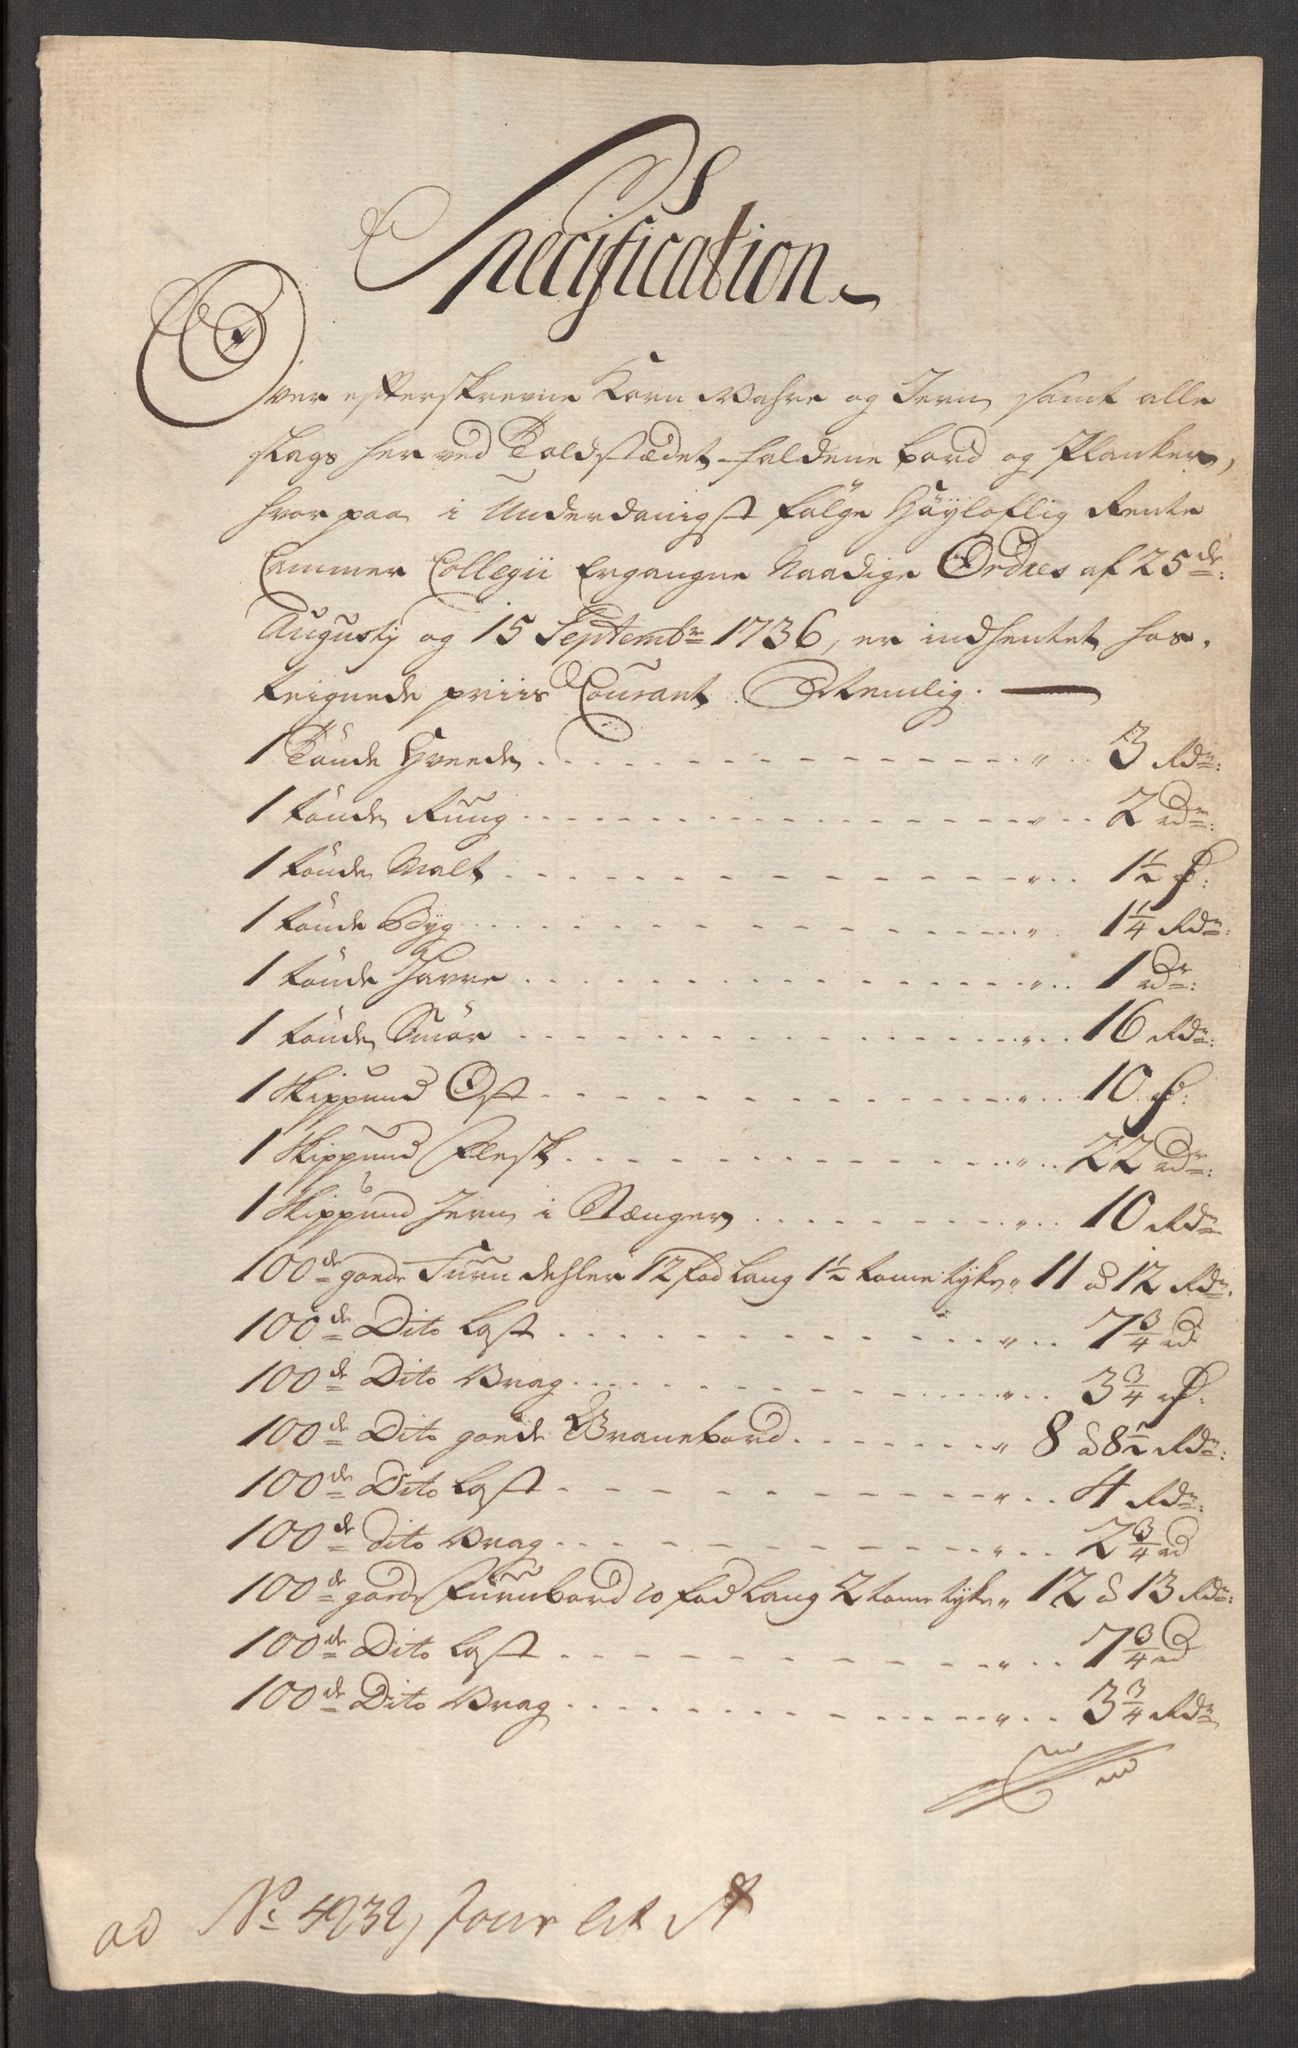 Specification
Over efterskrevne Korn Wahre og Jern samt alle
slags her ved Toldstædet faldene bord og Planker,
hvor paa i Underdanigst følge Høyloflig Rente
Cammer Collegii Ergangne Naadige Ordres af 25de
Augusty og 15 Septembr 1736, er indhentet hos-
teignede priis Courant. Nemlig.
1 Tønde Hveede 3 Rdr:
1 tønde Rùùg 2 rdr:
1 tønde Malt 1½ rd:
1 tønde Byg 1¼ Rdr:
1 tønde Havre 1 rdr:
1 tønde Smör 16 Rdr:
1 Skippund Ost 10 rd:
1 Skippund Flesk 22 rdr:
1 Skippund Jern i Stænger 10 Rdr
100de goede Furu dehler 12 fod lang 1½ tome tyke 11 à 12 Rdr.
100de Dito Last 7¾ rd
100de Dito Vrag 3¾ rd:
100de Dito goede Granebord 8 à 8½ Rdr:
100de Dito Last 4 Rdr:
100de dito Vrag 2¾ rd
100de goede Furubord 10 fod lang 2 tome tyke 12 à 13 Rdr:
100de Dito Last 7¾ rd
100de Dito Vrag 3¾ Rdr
ad No: 4232, Jour Lit A